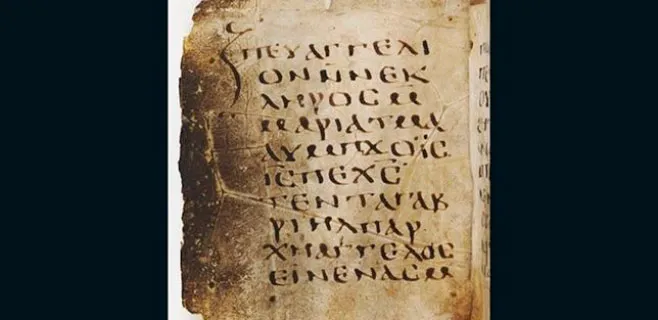 ⲡⲉⲩⲁⲅⲅⲉⲗⲓ
ⲟⲛⲛ̅ⲛⲉⲕ
ⲗⲏⲣⲟⲥⲙ
ⲙⲁⲣⲓⲁⲧⲙⲁ
ⲁⲩⲙⲡϫⲟⲓ̈ⲥ
ⲓ̅ⲥ̅ⲡⲉⲭ̅ⲥ̅
ⲧⲉⲛⲧⲁⲅⲁⲃ
ⲣⲓⲏⲗⲡⲁⲣ
ⲭⲏⲁⲅⲅⲉⲗⲟⲥ
ⲉⲓⲛⲉⲛⲁⲥⲙ